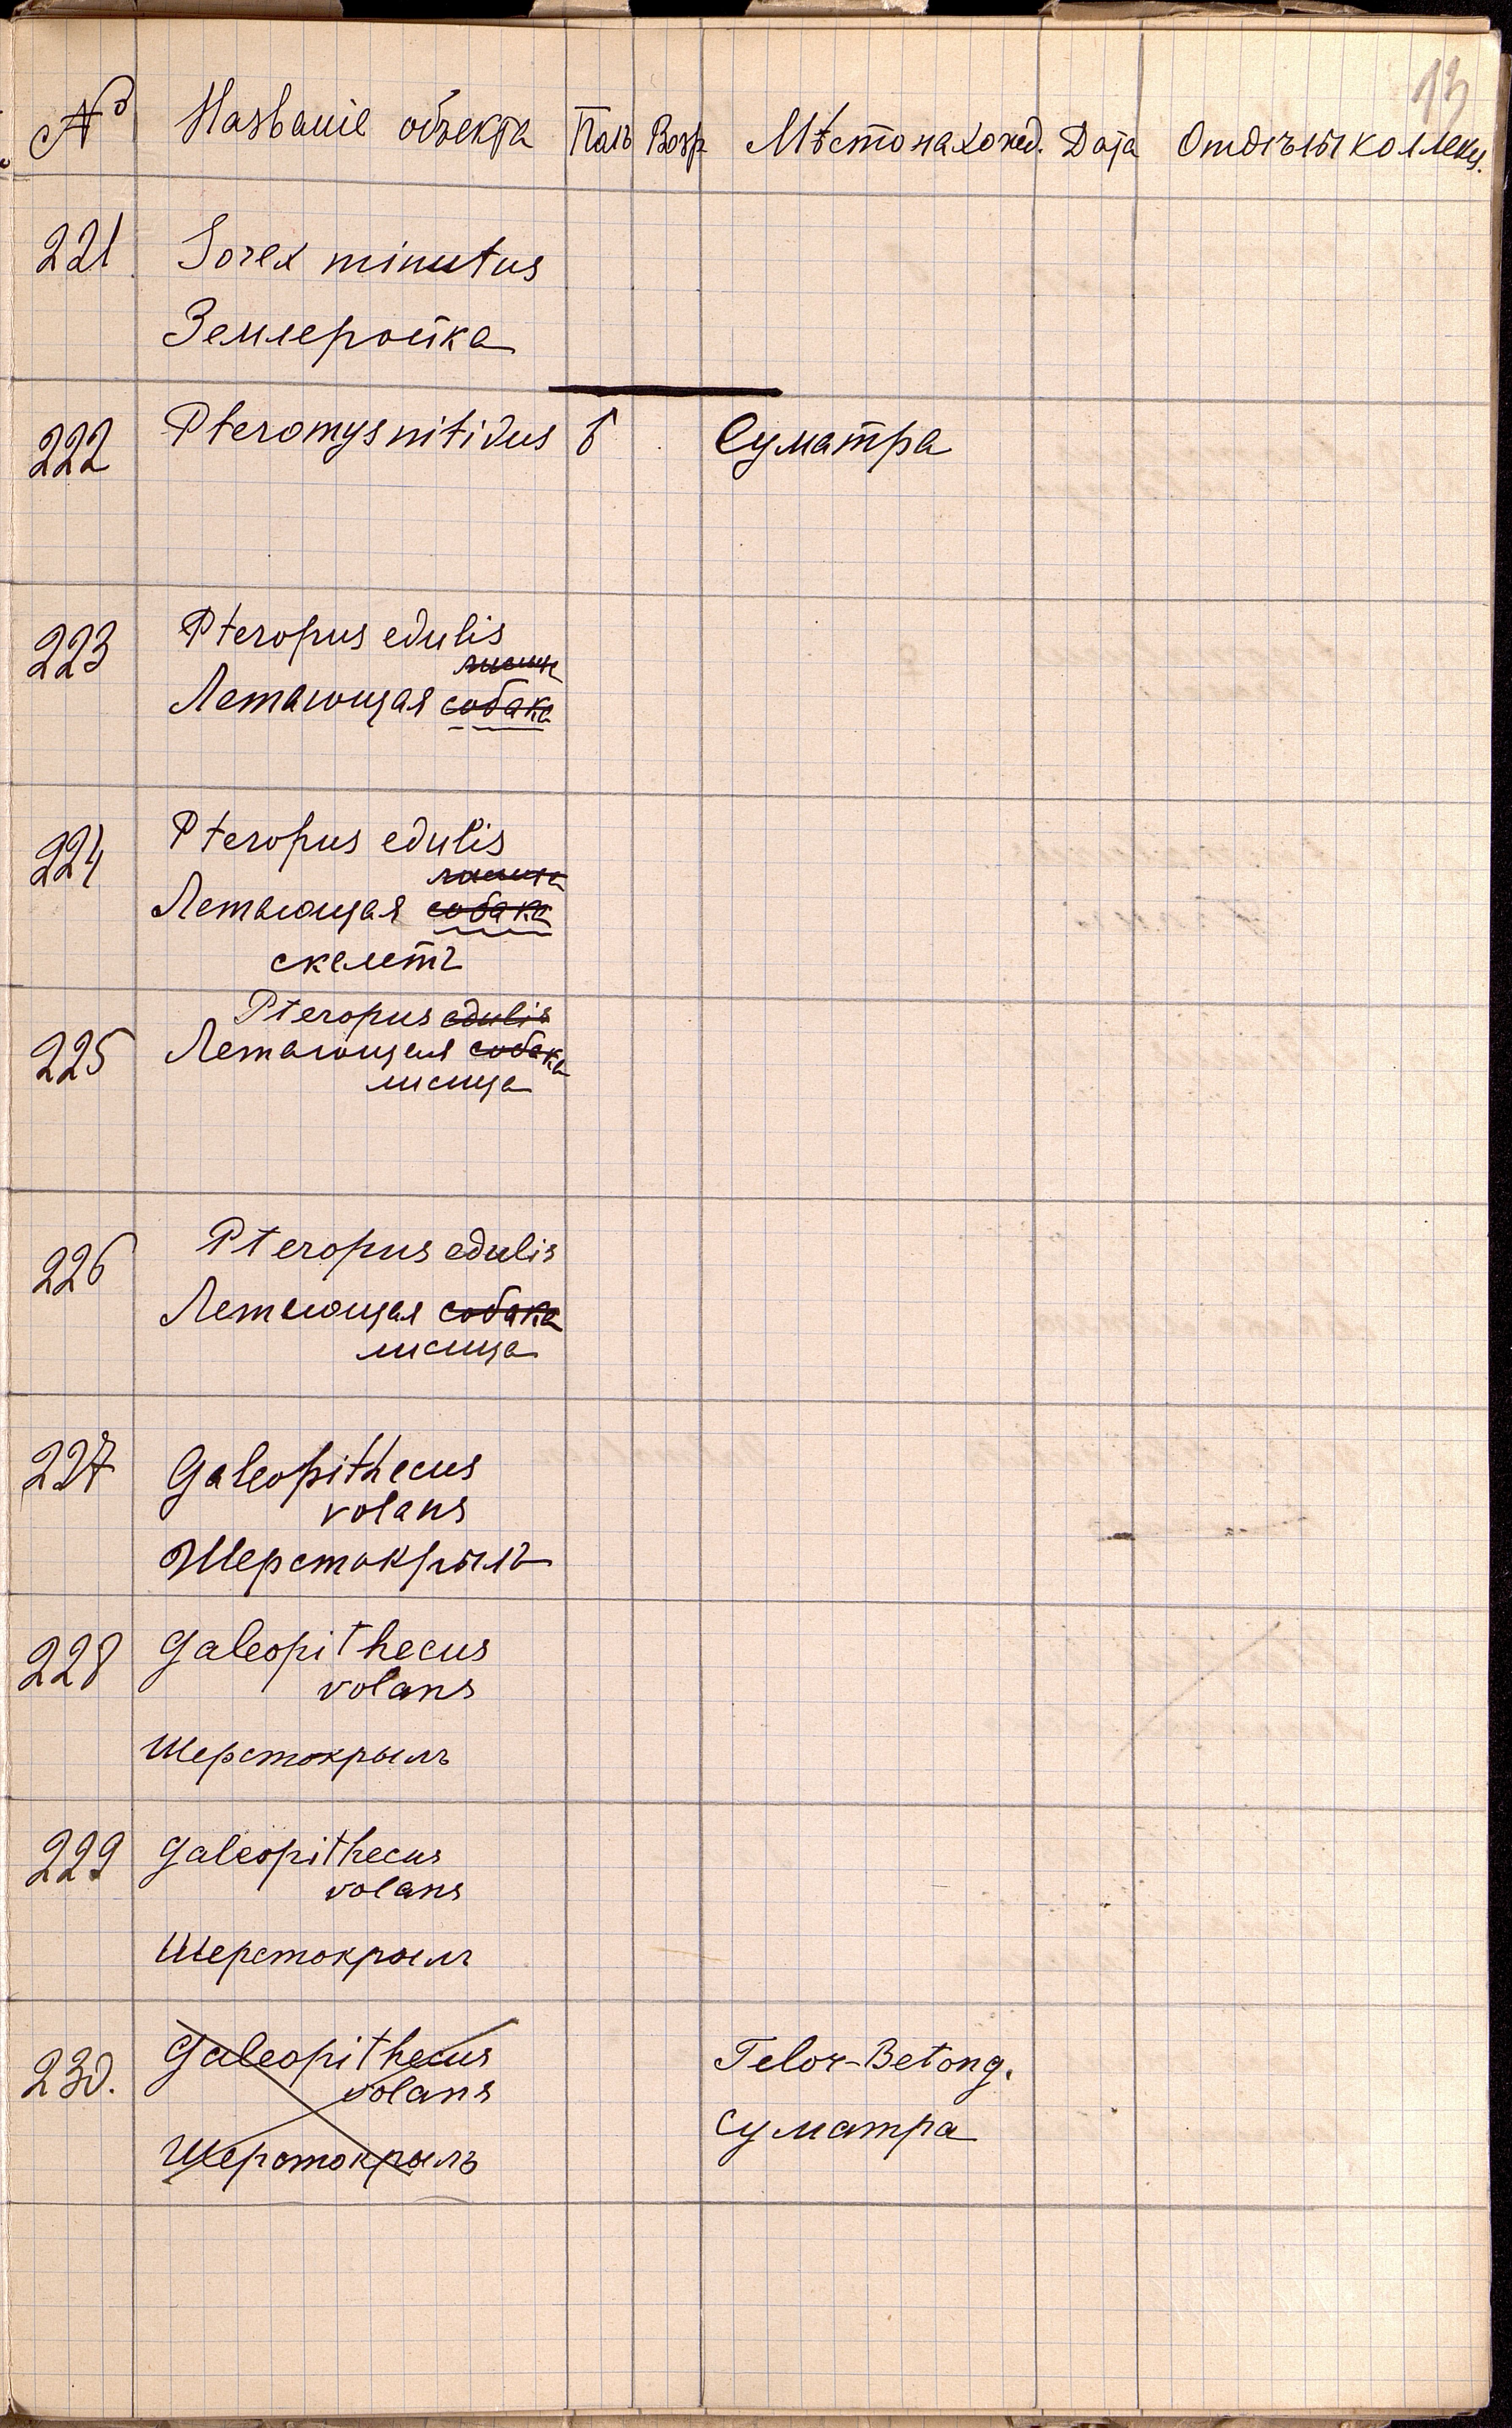 13
№ Названіе объекта Полъ Возр. Мѣстонахожд. Дата Отдѣлы коллекц.
221 Sorex minutus
Землеройка
222 Pteromys nitidus ♂ Суматра
223 Pteropus edulis
Летающая собака
224 Pteropus edulis
Летающая собака
скелетъ
Pteropus edulis
225 Летающая собака
лисица
226 Pteropus edulis
Летающая собака
лисица
227 Galeopithecus
volans
Шерстокрылъ
228 Galeopithecus
volans
Шерстокрылъ
229 Galeopithecus
volans
Шерстокрылъ
230. Galeopithecus Telor-Betong.
volans
Шерстокрылъ Суматра